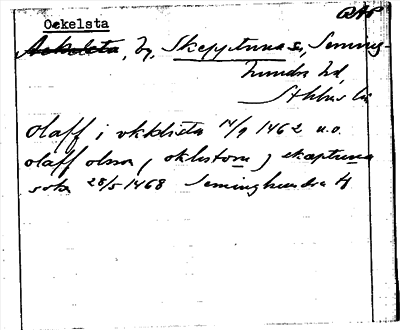 Ockelsta
Ockelsta, by, Skepptuna sn, Seming-
hundra hd,
Sthlms län
Olaff i okklista 14/9 1462 u.o.
olaff olsson i oklestom j skæptuna
sokn 28/5 1468 Seminghundra H